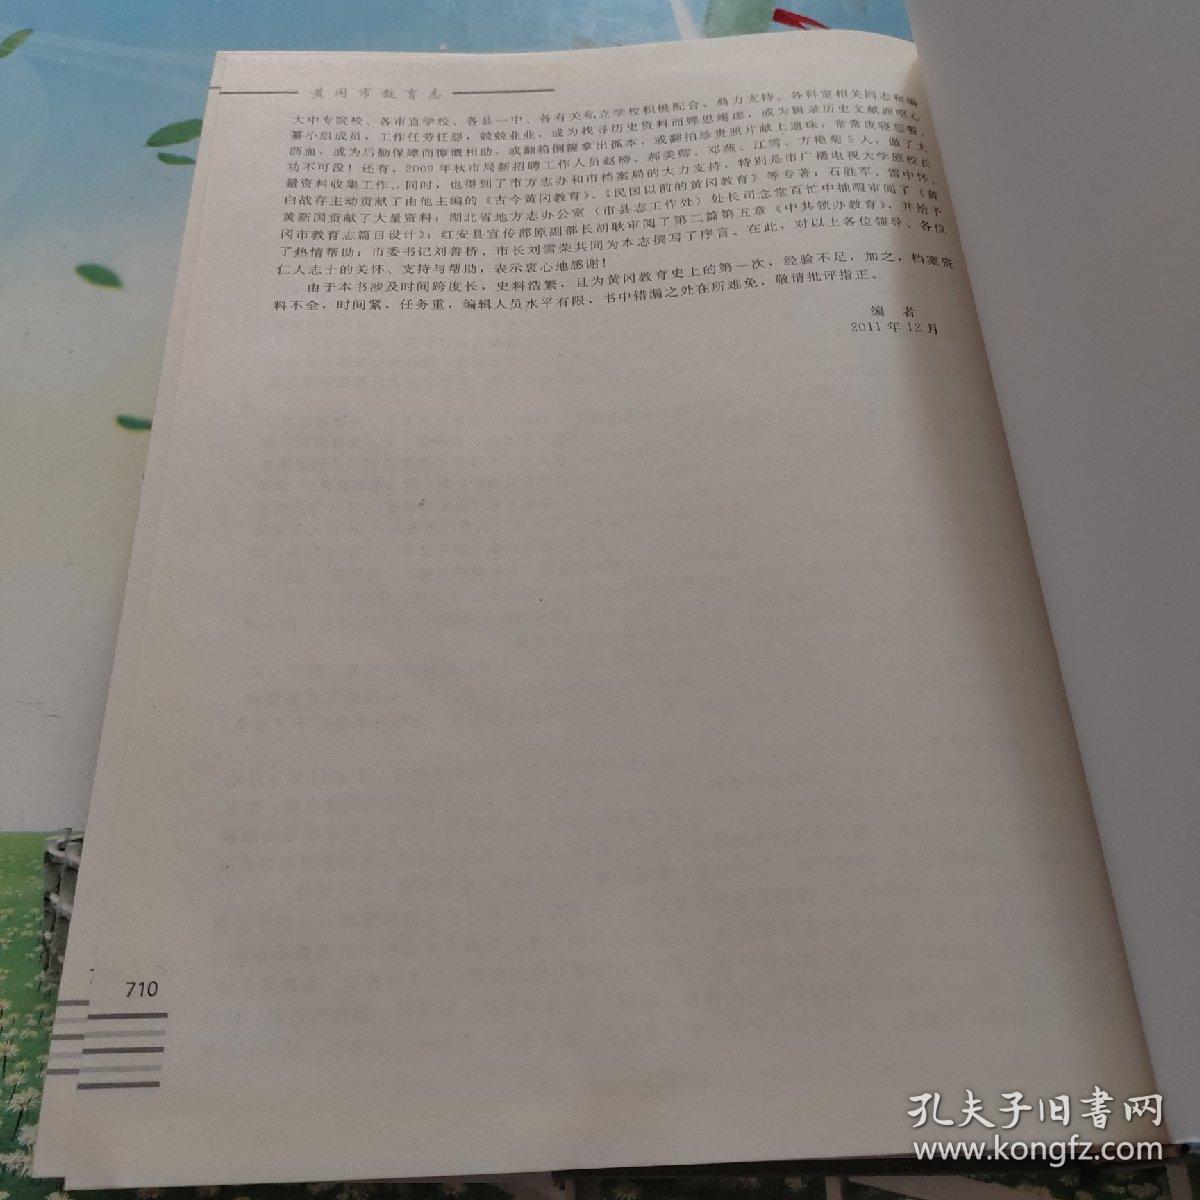 黄冈市教育志
大中专院校、各市直学校、各县一中、各有关私立学校积极配合，鼎力支持。各科室相关同志和编
纂小组成员，工作任劳任怨，兢兢业业，或为找寻历史资料而殚思竭虑，或为辑录历史文献而呕心
沥血，或为后勤保障而慷慨相助，或翻箱倒箧拿出孤本，或翻拍珍贵照片献上遗珠，常常废寝忘餐，
功不可没！还有，2009年秋市局新招聘工作人员赵磅、郝美卿、邓燕、江雪、方艳菊5人，做了大
量资料收集工作。同时，也得到了市方志办和市档案局的大力支持，特别是市广播电视大学原校长
白战存主动贡献了由他主编的《古今黄冈教育》、《民国以前的黄冈教育》等专著；石胜军、雷中怀、
黄新国贡献了大量资料；湖北省地方志办公室（市县志工作处）处长司念堂百忙中抽暇审阅了《黄
冈市教育志篇目设计》；红安县宣传部原副部长胡耿审阅了第二篇第五章《中共领办教育》，并给予
了热情帮助；市委书记刘善桥、市长刘雪荣共同为本志撰写了序言。在此，对以上各位领导、各位
仁人志士的关怀、支持与帮助，表示衷心地感谢！
由于本书涉及时间跨度长，史料浩繁，且为黄冈教育史上的第一次，经验不足，加之，档案资
料不全，时间紧，任务重，编辑人员水平有限，书中错漏之处在所难免，敬请批评指正。
编 者
2011年12月
710
孔夫子旧书网
www.kongfz.com